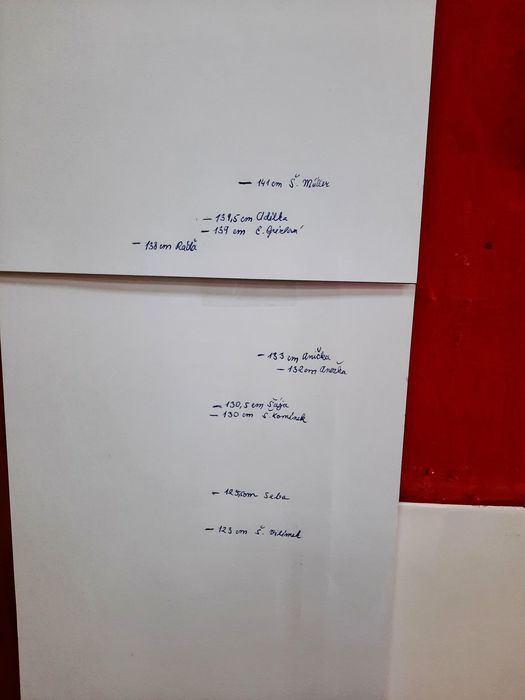 — 141 cm Š. Müller
— 139,5 cm Adélka
— 139 cm E.
— 138 cm
— 133 cm Anička
— 132 cm Anežka
— 130,5 cm Šája
— 130 cm Š. Komínek
— cm Seba
— 123 cm Š. Vilímek